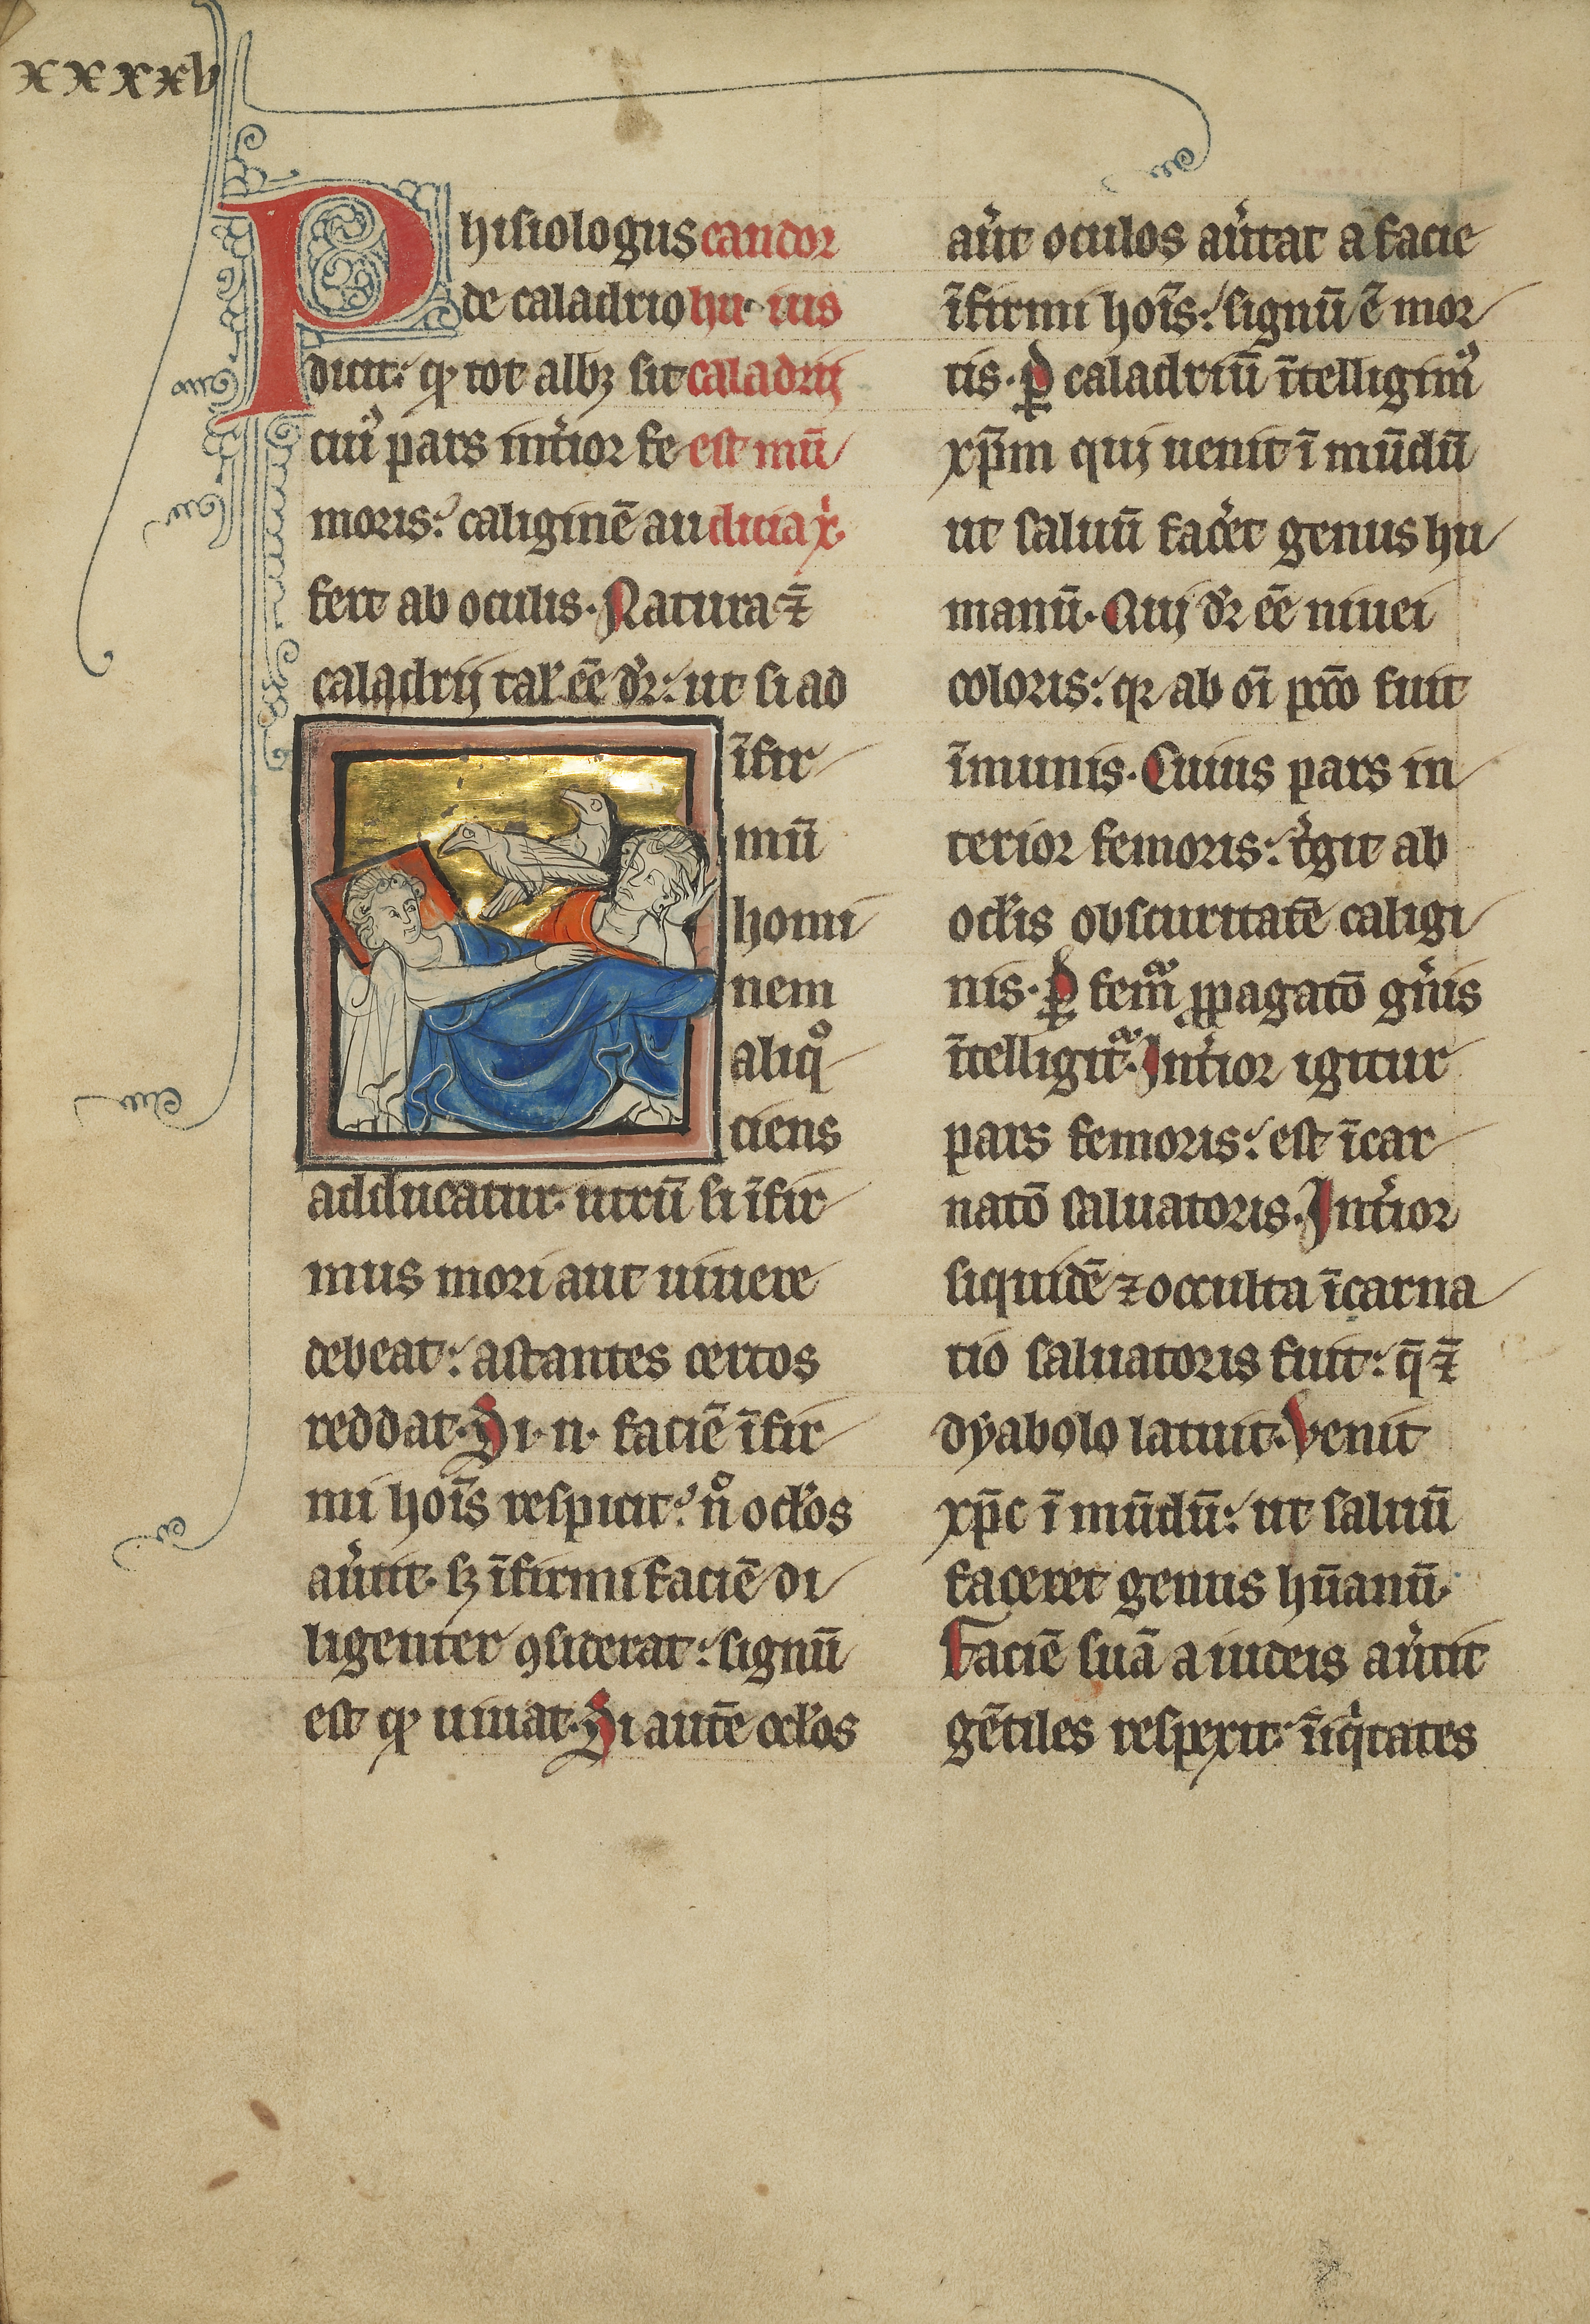 xxxxv
Phisiologus candor
de caladrio hu ius
dicit: qͥ tot albꝫ sit caladrij
cuiꝰ pars int̾ior fe est mū
moris: caliginē au dicia xͥ.
fert ab oculis. Natura ⁊̄
caladrij tal̾ eē dr̄: ut si ad
īfir
mū
homi
nem
aliqͦ
ciens
adducatur. utrū si īfir
mus mori aut uiuere
debeat: astantes certos
reddat. Si .n. faciē īfir
mi hoīs respicit: nͦ ocl̾os
au̾tit. sꝫ īfirmi faciē di
ligenter ꝯsiderat: signū
est ꝙ uiuat. Si autē ocl̾os
au̾it oculos au̾tat a facie
īfirmi hoīs: signū ē mor
tis. ꝑ caladriū ītelligimꝰ
xp̄m quj uenit ī mūdū
ut saluū fac̾et genus hu
manū. Quj dr̄ eē niuei
coloris: qꝛ ab oī pctō fuit
īmunis. Cuius pars in
terior femoris: t̾git ab
ocl̾is obscuritatē caligi
nis. ꝑ femᷓ ꝓpagatō gn̾is
ītelligitᷓ. Int̾ior igitur
pars femoris: est īcar
natō saluatoris. Int̾ior
siquidē ⁊ occulta īcarna
tio saluatoris fuit: q̄ ⁊̄
dyabolo latuit. Venit
xp̄c ī mūdū: ut saluū
faceret genus hūanū.
Faciē suā a iudeis au̾tit
gētiles respexit: īiqͥtates